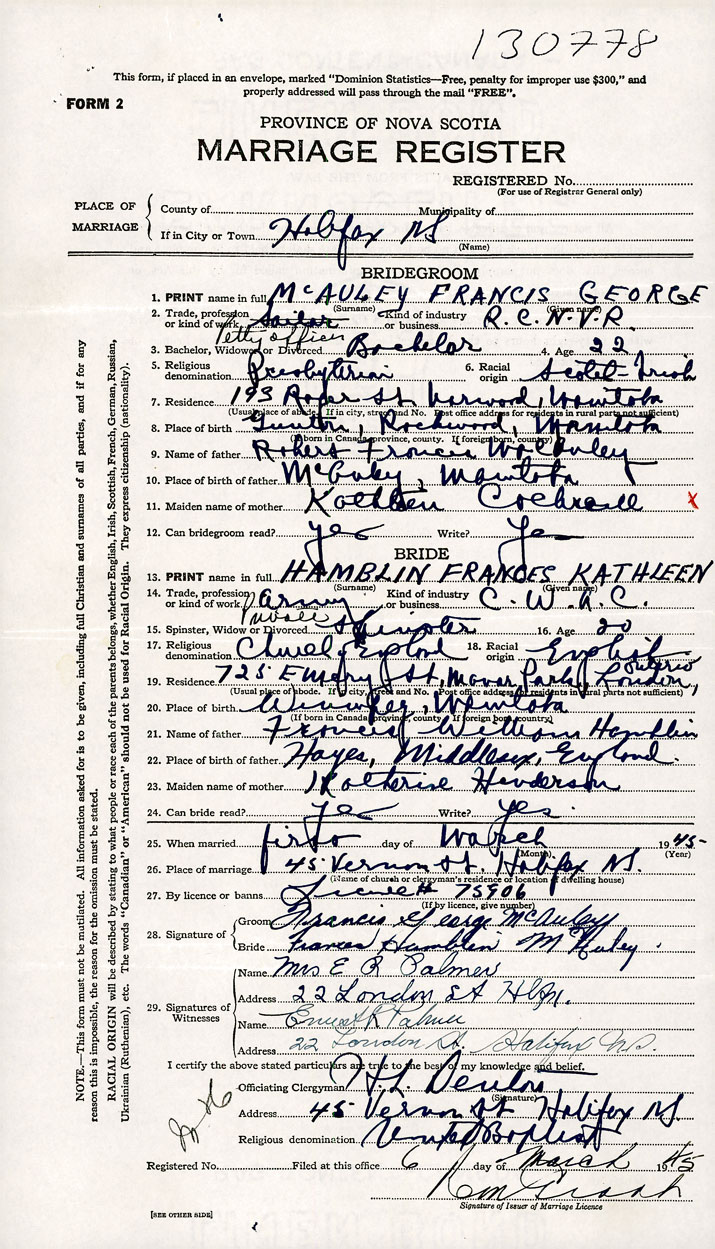 130778
This form, if placed in an envelope, marked "Dominion Statistics—Free, penalty for improper use $300," and
properly addressed will pass through the mail "FREE".
FORM 2
PROVINCE OF NOVA SCOTIA
MARRIAGE REGISTER
REGISTERED No.
(For use of Registrar General only)
PLACE OF MARRIAGE
County of Municipality of
If in City or Town Halifax NS
(Name)
BRIDEGROOM
1. PRINT name in full McAULEY FRANCIS GEORGE
(Surname) (Given name)
2. Trade, profession or kind of work Sailor Petty officer Kind of industry or business R.C.N.V.R.
3. Bachelor, Widower or Divorced Bachelor 4. Age 22
5. Religious denomination Presbyterian 6. Racial origin Scotch-Irish
7. Residence 193 Roper St. Norwood, Manitoba
(Usual place of abode. If in city, street and No. Post office address for residents in rural parts not sufficient)
8. Place of birth Gunton, Rockwood, Manitoba
(If born in Canada province, county. If foreign born, country)
9. Name of father Robert Francis McCauley
10. Place of birth of father Manitoba
11. Maiden name of mother Kathleen Cochrane x
12. Can bridegroom read? yes Write? yes
BRIDE
13. PRINT name in full HAMBLIN FRANCES KATHLEEN
(Surname) (Given name)
14. Trade, profession or kind of work Army Private Kind of industry or business C.W.A.C.
15. Spinster, Widow or Divorced Spinster 16. Age 20
17. Religious denomination Church England 18. Racial origin English
19. Residence 725 Emery St, Manor Park, London, Ontario
(Usual place of abode. If in city, street and No. Post office address for residents in rural parts not sufficient)
20. Place of birth Winnipeg, Manitoba
(If born in Canada province, county. If foreign born, country)
21. Name of father Francis William Hamblin
22. Place of birth of father Hayes, Middlesex, England.
23. Maiden name of mother Katherine Henderson
24. Can bride read? yes Write? yes.
25. When married first day of March 1945
(Month) (Year)
26. Place of marriage 45 Vernon St. Halifax NS.
(Name of church or clergyman's residence or location of dwelling house)
27. By licence or banns License # 75906
(If by licence, give number)
28. Signature of
Groom Francis George McAuley
Bride Frances Hamblin McAuley.
29. Signatures of Witnesses
Name Mrs E R Palmer
Address 22 London St Hfx.
Name Ernest R Palmer
Address 22 London St. Halifax N.S.
I certify the above stated particulars are true to the best of my knowledge and belief.
Officiating Clergyman H.L. Denton
(Signature)
Address 45 Vernon St Halifax NS.
Religious denomination United Baptist
Registered No. Filed at this office 6 day of March 1945
Signature of Issuer of Marriage Licence
[SEE OTHER SIDE]
NOTE.—This form must not be mutilated. All information asked for is to be given, including full Christian and surnames of all parties, and if for any
reason this is impossible, the reason for the omission must be stated.
RACIAL ORIGIN will be described by stating to what people or race each of the parents belongs, whether English, Irish, Scottish, French, German, Russian,
Ukrainian (Ruthenian), etc. The words "Canadian" or "American" should not be used for Racial Origin. They express citizenship (nationality).